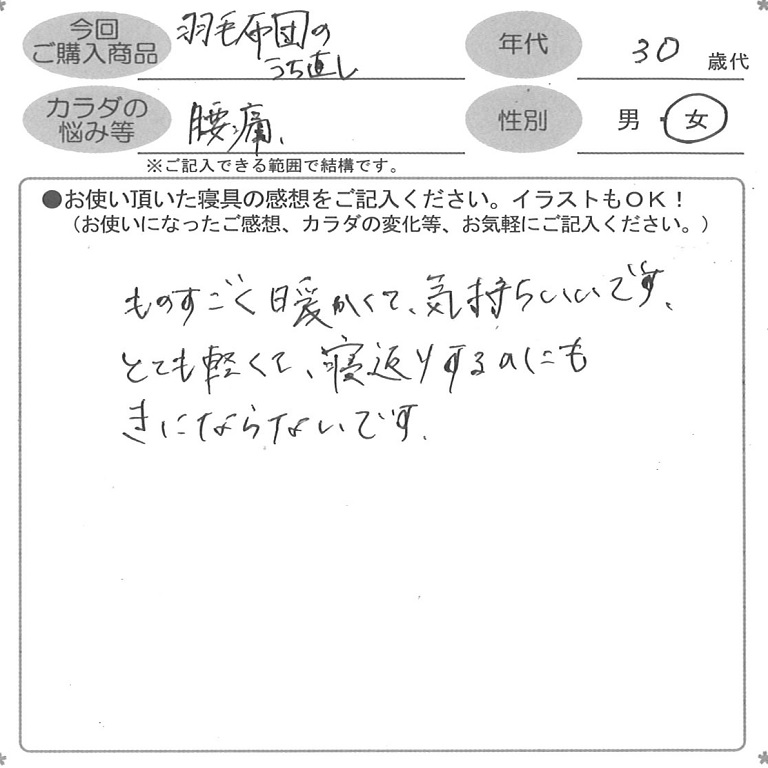 今回
ご購入商品
羽毛布団の
うち直し
年代
30 歳代
カラダの
悩み等
腰痛、
性別
男・女
※ご記入できる範囲で結構です。
●お使い頂いた寝具の感想をご記入ください。イラストもOK!
(お使いになったご感想、カラダの変化等、お気軽にご記入ください。)
ものすごく暖かくて、気持ちいいです。
とても軽くて、寝返りするのにも
きにならないです。